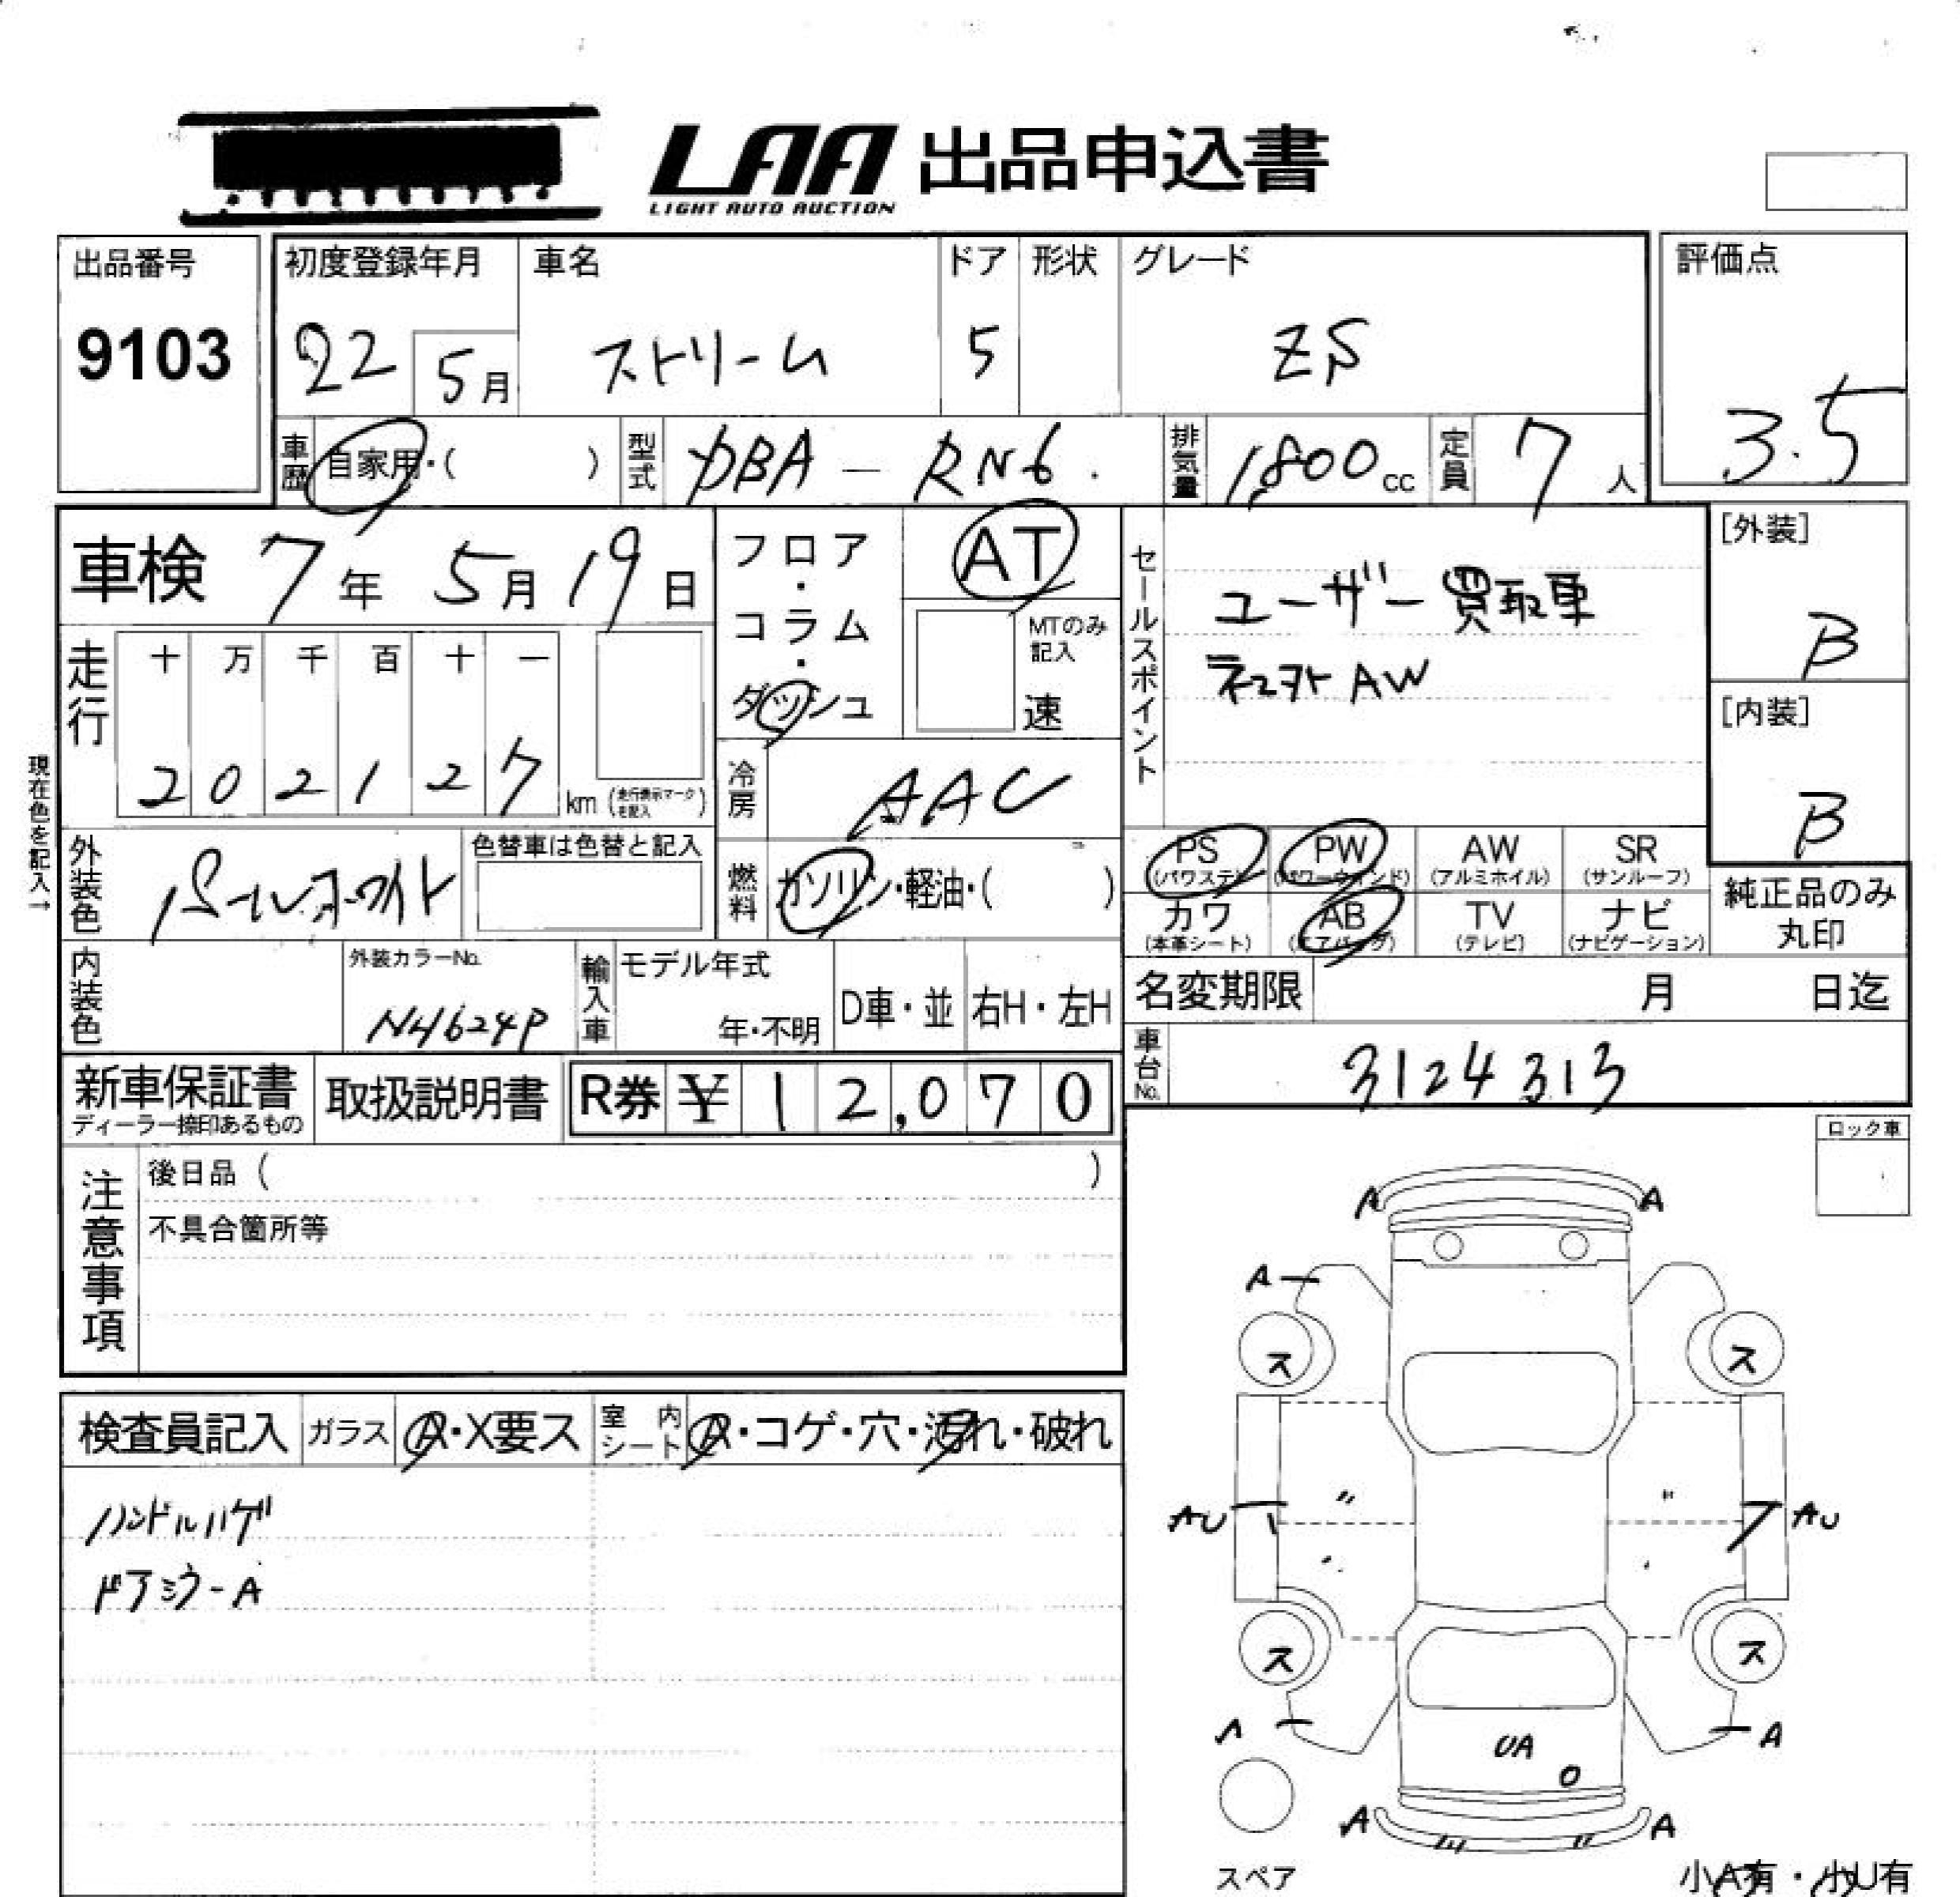 LAA 出品申込書
LIGHT AUTO AUCTION
出品番号
9103
初度登録年月
22 5月
車名
ストリーム
ドア
5
形状
グレード
ZS
評価点
3.5
車歴 自家用・( )
型式 DBA - RN6
排気量 1,800cc
定員 7人
車検 7年 5月 19日
走行
十 万 千 百 十 一
2 0 2 1 2 7 km (走行表示マークを記入)
現在色を記入→
外装色 パールホワイト
色替車は色替と記入
内装色
外装カラーNo.
NH624P
フロア・コラム・ダッシュ
AT
MTのみ記入
速
冷房 AAC
燃料 ガソリン・軽油・( )
輸入車
モデル年式
年・不明
D車・並
右H・左H
セールスポイント
ユーザー買取車
AW
[外装]
B
[内装]
B
PS (パワステ)
PW (パワーウィンド)
AW (アルミホイル)
SR (サンルーフ)
カワ (本革シート)
AB (エアバッグ)
TV (テレビ)
ナビ (ナビゲーション)
純正品のみ丸印
名変期限 月 日迄
車台No. 3124313
新車保証書
ディーラー捺印あるもの
取扱説明書
R券 ¥12,070
注意事項
後日品 ( )
不具合箇所等
検査員記入
ガラス A・X要ス
室内シート A・コゲ・穴・汚れ・破れ
ハンドルハゲ
ドアミラーA
ロック車
A A
A
ス ス
AU 〃 〃 AU
ス ス
A A
UA
A A
スペア
小A有・小U有